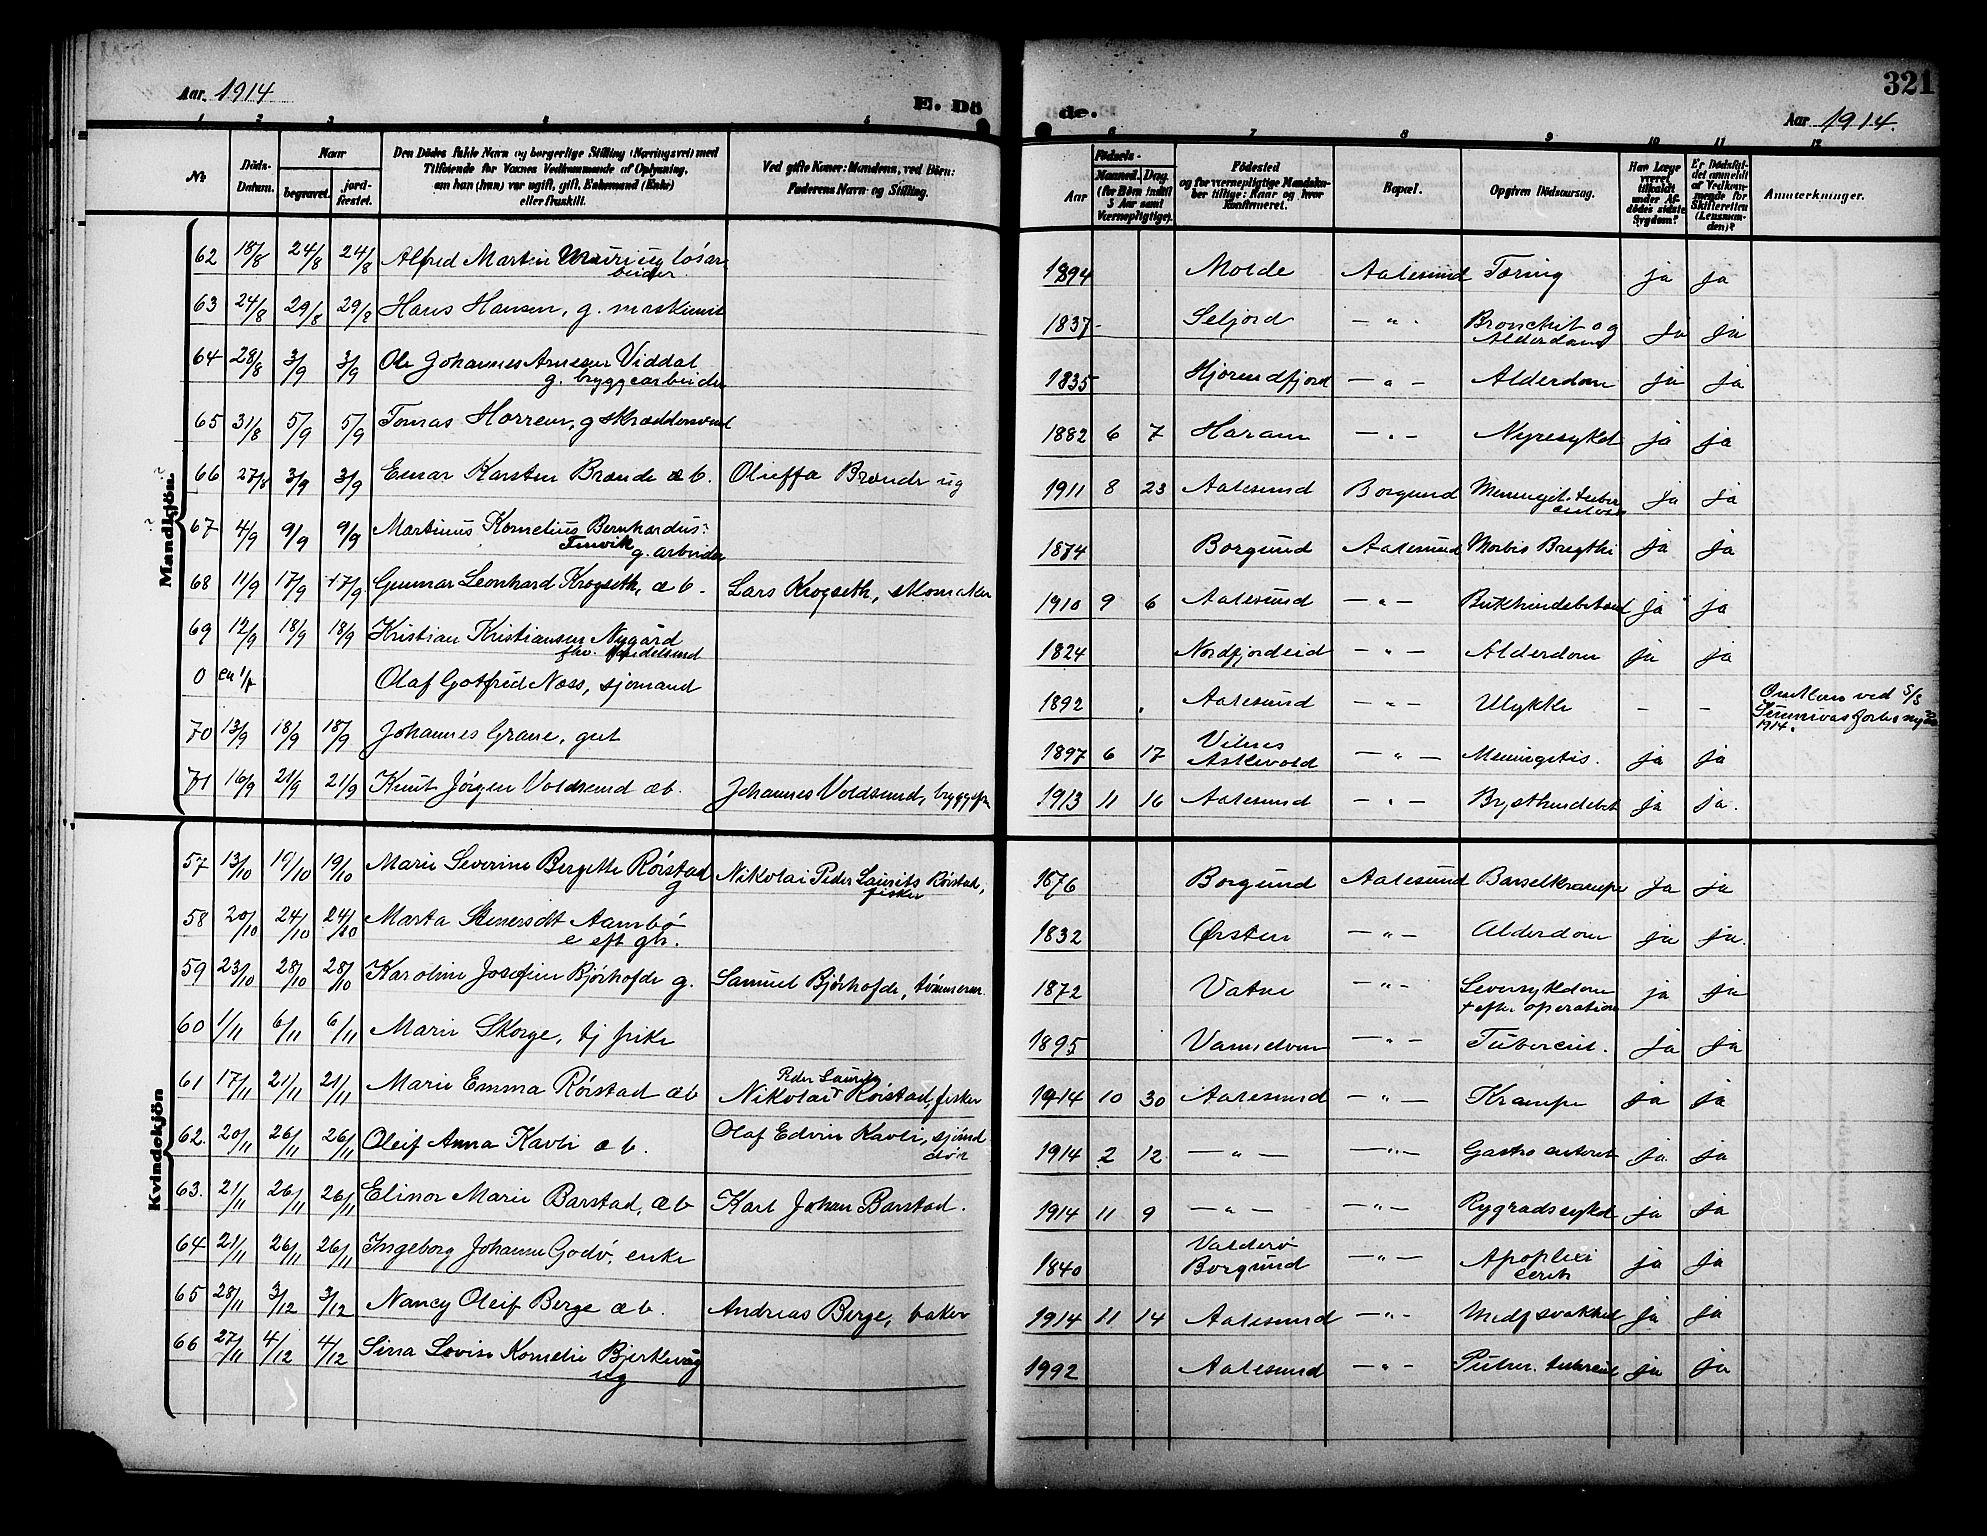 321
Aar. 1914
E. Dö
de.
Aar 1914.
1 2 3 4 5 6 7 8 9 10 11 12
Nr.
Döds-Datum.
Naar
begravet.
jord-fæstet.
Den Dödes fulde Navn og borgerlige Stilling (Næringsvei) med
Tilföiende for Voxnes Vedkommende af Oplysning,
om han (hun) var ugift, gift, Enkemand (Enke)
eller fraskilt.
Ved gifte Koner: Mandens, ved Börn:
Faderens Navn og Stilling.
Födsels-
Aar
Maaned. Dag.
(for Børn indtil
5 Aar samt
Værnepligtige).
Födested
og for værnepligtige Mandskaber tillige: Naar og hvor
konfirmeret.
Bopæl.
Opgiven Dödsaarsag.
Har Læge
været
tilkaldt
under Afdödes sidste
Sygdom?
Er Dödsfaldet anmeldt
af Vedkommende for
Skifteretten
(Lensmanden)?
Anmerkninger.
Mandkjön.
62 18/8 24/8 24/8 Alfred Martin ug løsarbeider 1894 Molde Aalesund Tæring ja ja
63 24/8 29/8 29/8 Hans Hansen, g. maskinist 1837 Seljord — " - Bronchit og Alderdom ja ja
64 28/8 3/9 3/9 Ole Johannes Arnesen Viddal g. bryggearbeider 1835 Hjørendfjord — " — Alderdom ja ja
65 31/8 5/9 5/9 Tomas Horrem, g skræddersvend 1882 6 7 Haram — " - Nyresykd ja ja
66 27/8 3/9 3/9 Einar Karsten Brænde æb. Oluffa Brænde ug 1911 8 23 Aalesund Borgund Meningit. ja ja
67 4/9 9/9 9/9 Martinus Kornelius Bernhardus Furvik g. arbeider 1874 Borgund Aalesund Morbis Brigthi ja ja
68 11/9 17/9 17/9 Gunnar Leonhard Krogseth, æb. Lars Krogseth, skomaker 1910 9 6 Aalesund — " — Bukhindebetend ja ja
69 12/9 18/9 18/9 Kristian Kristiansen Nygård fhv. handelsmd 1824 Nordfjordeid — " — Alderdom ja ja
0 ca 1/7 Olaf Gotfred Næss, sjømand 1892 Aalesund — " — Ulykke - - ved S/S 1914.
70 13/9 18/9 18/9 Johannes Grane, gut 1897 6 17 Vilnes Askevold — " — Meningitis. ja ja
71 16/9 21/9 21/9 Knut Jørgen Voldsund æb. Johannes Voldsund, 1913 11 16 Aalesund — " — Brysthindebet ja ja.
Kvindekjön
57 13/10 19/10 19/10 Marie Severine Bergette Rørstad g Nikolai Peder Laurits Rørstad, fisker 1876 Borgund Aalesund Barselkrampe ja ja
58 20/10 24/10 24/10 Marta Steinersdt Aambø e eft gbr. 1832 Ørsten — " — Alderdom ja ja.
59 23/10 28/10 28/10 Karoline Josefine Bjørhofde g. Samuel Bjørhofde, tømmerm. 1872 Vatne — " - Leversykdom + efter operation ja ja
60 1/11 6/11 6/11 Marie Skorge, tj pike 1895 Vannelven — " — Tubercul. ja ja
61 17/11 21/11 21/11 Marie Emma Rørstad æb Nikolai Peder Laurits Rørstad, fisker 1914 10 30 Aalesund — " — Krampe ja ja
62. 20/11 26/11 26/11 Oleif Anna Kavli æb. Olaf Edvin Kavli, sjømd død 1914 2 12 — " — — " — Gastro enterit ja ja
63. 21/11 26/11 26/11 Elinor Marie Barstad, æb Karl Johan Barstad. 1914 11 9 — " — — " — Rygradssykd ja ja
64 21/11 26/11 26/11 Ingeborg Johanne Godø, enke 1840 Valderø Borgund — " — Apoplexi cereb ja ja
65 28/11 3/12 3/12 Nancy Oleif Berge æb. Andreas Berge, baker 1914 11 14 Aalesund — " - Medf svakhed ja ja
66 27/11 4/12 4/12 Sina Lovise Kornelie Bjerkevåg ug 1992 Aalesund — " - Pulm. tubercul ja ja